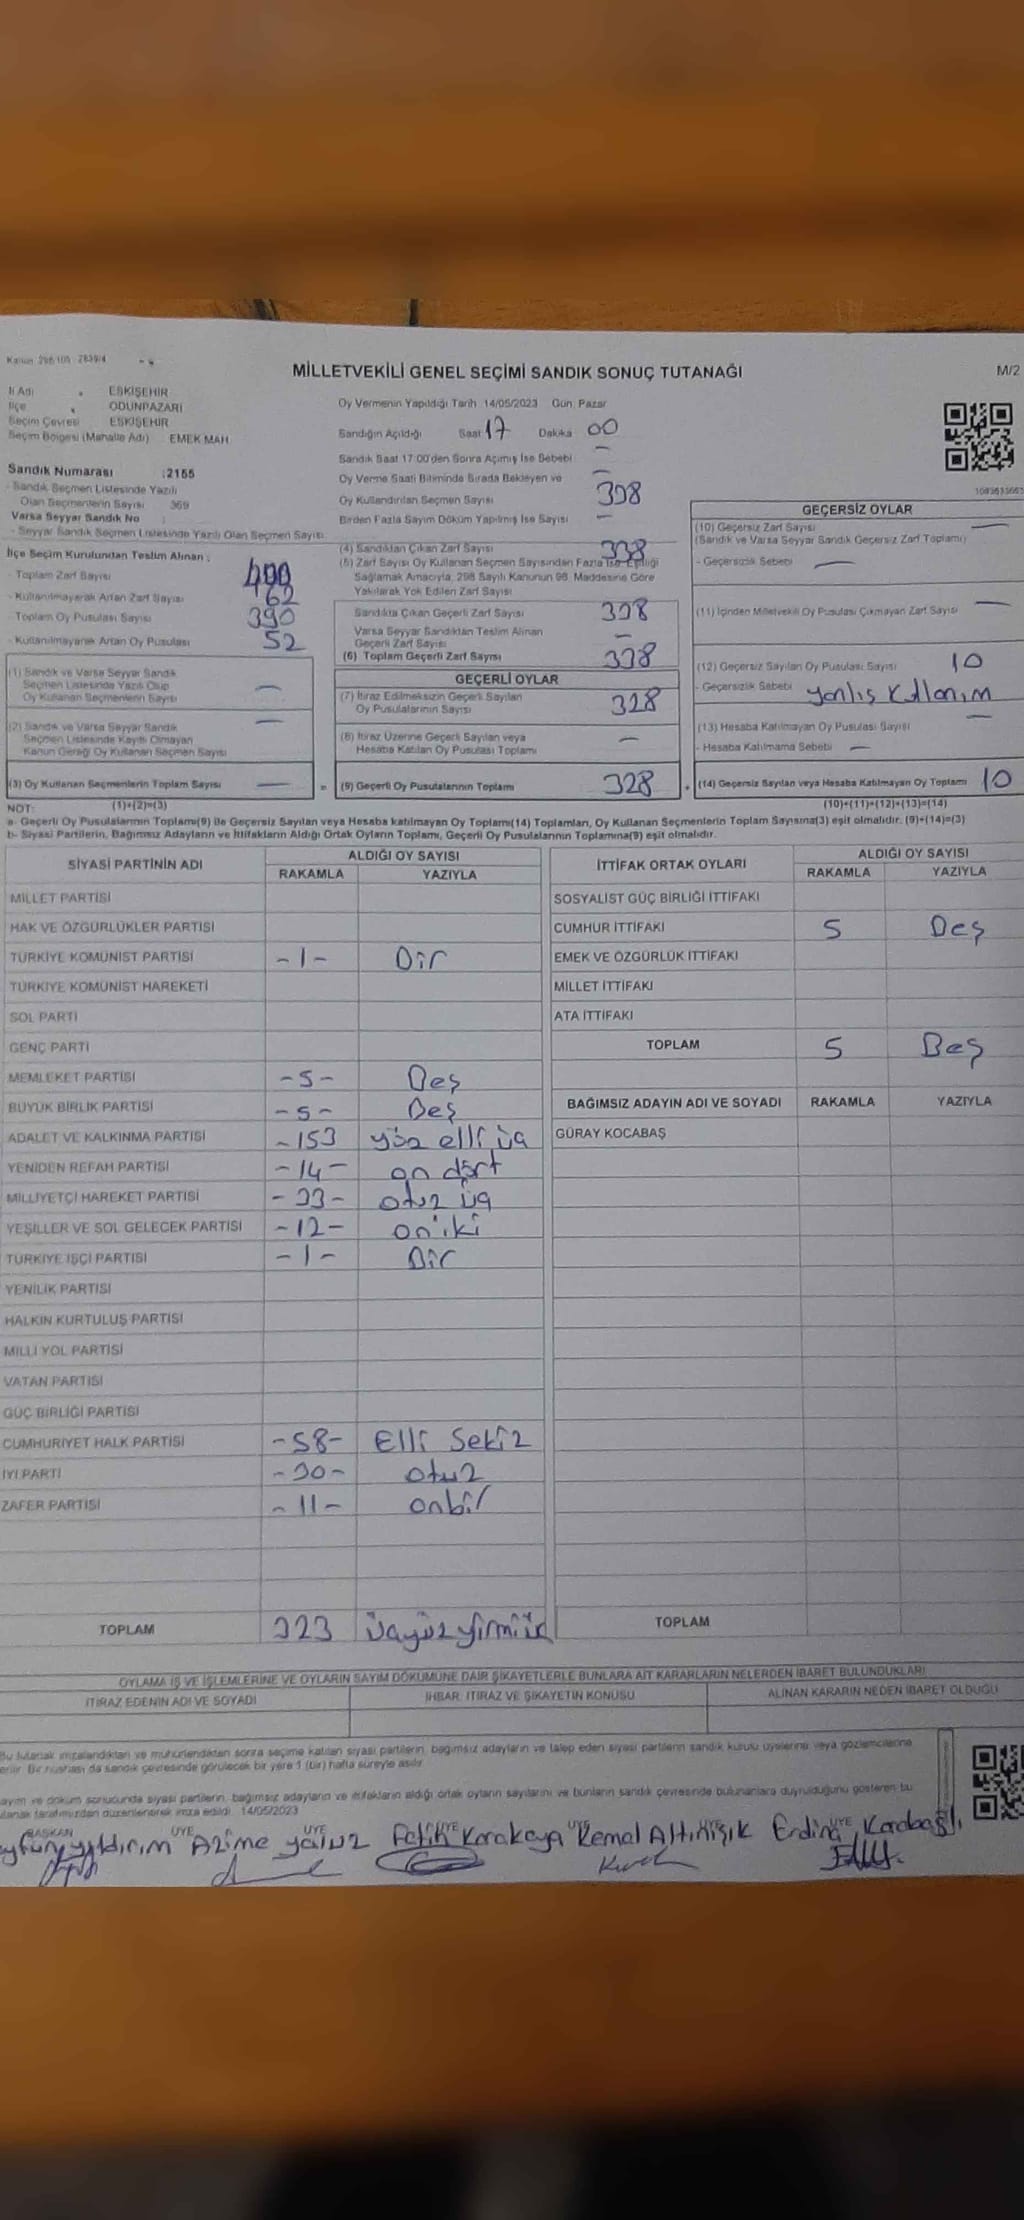 Kanun 298/105 2839/4
MİLLETVEKİLİ GENEL SEÇİMİ SANDIK SONUÇ TUTANAĞI
M/2
İl Adı : ESKİŞEHİR
İlçe : ODUNPAZARI
Seçim Çevresi ESKİŞEHİR
Seçim Bölgesi (Mahalle Adı) EMEK MAH
Sandık Numarası :2155
- Sandık Seçmen Listesinde Yazılı
Olan Seçmenlerin Sayısı 369
Varsa Seyyar Sandık No :
- Seyyar Sandık Seçmen Listesinde Yazılı Olan Seçmen Sayısı
İlçe Seçim Kurulundan Teslim Alınan :
- Toplam Zarf Sayısı 400
- Kullanılmayarak Artan Zarf Sayısı 62
Toplam Oy Pusulası Sayısı 390
- Kullanılmayarak Artan Oy Pusulası 52
(1) Sandık ve Varsa Seyyar Sandık
Seçmen Listesinde Yazılı Olup
Oy Kullanan Seçmenlerin Sayısı —
(2) Sandık ve Varsa Seyyar Sandık
Seçmen Listesinde Kayıtlı Olmayan
Kanun Gereği Oy Kullanan Seçmen Sayısı —
(3) Oy Kullanan Seçmenlerin Toplam Sayısı —
Oy Vermenin Yapıldığı Tarih 14/05/2023 Gün: Pazar
Sandığın Açıldığı Saat 17 Dakika 00
Sandık Saat 17:00'den Sonra Açılmış İse Sebebi —
Oy Verme Saati Bitiminde Sırada Bekleyen ve —
Oy Kullandırılan Seçmen Sayısı 338
Birden Fazla Sayım Döküm Yapılmış İse Sayısı —
(4) Sandıktan Çıkan Zarf Sayısı 338
(5) Zarf Sayısı Oy Kullanan Seçmen Sayısından Fazla İse Eşitliği
Sağlamak Amacıyla, 298 Sayılı Kanunun 98. Maddesine Göre
Yakılarak Yok Edilen Zarf Sayısı
Sandıkta Çıkan Geçerli Zarf Sayısı 338
Varsa Seyyar Sandıktan Teslim Alınan
Geçerli Zarf Sayısı —
(6) Toplam Geçerli Zarf Sayısı 338
GEÇERLİ OYLAR
(7) İtiraz Edilmeksizin Geçerli Sayılan
Oy Pusulalarının Sayısı 328
(8) İtiraz Üzerine Geçerli Sayılan veya
Hesaba Katılan Oy Pusulası Toplamı —
= (9) Geçerli Oy Pusulalarının Toplamı 328
GEÇERSİZ OYLAR
(10) Geçersiz Zarf Sayısı —
(Sandık ve Varsa Seyyar Sandık Geçersiz Zarf Toplamı)
- Geçersizlik Sebebi —
(11) İçinden Milletvekili Oy Pusulası Çıkmayan Zarf Sayısı —
(12) Geçersiz Sayılan Oy Pusulası Sayısı 10
- Geçersizlik Sebebi yanlış kullanım
(13) Hesaba Katılmayan Oy Pusulası Sayısı —
- Hesaba Katılmama Sebebi —
+ (14) Geçersiz Sayılan veya Hesaba Katılmayan Oy Toplamı 10
NOT: (1)+(2)=(3) (10)+(11)+(12)+(13)=(14)
a- Geçerli Oy Pusulalarının Toplamı(9) ile Geçersiz Sayılan veya Hesaba katılmayan Oy Toplamı(14) Toplamları, Oy Kullanan Seçmenlerin Toplam Sayısına(3) eşit olmalıdır. (9)+(14)=(3)
b- Siyasi Partilerin, Bağımsız Adayların ve İttifakların Aldığı Ortak Oyların Toplamı, Geçerli Oy Pusulalarının Toplamına(9) eşit olmalıdır.
SİYASİ PARTİNİN ADI ALDIĞI OY SAYISI
RAKAMLA YAZIYLA
MİLLET PARTİSİ
HAK VE ÖZGÜRLÜKLER PARTİSİ
TÜRKİYE KOMÜNİST PARTİSİ -1- Bir
TÜRKİYE KOMÜNİST HAREKETİ
SOL PARTİ
GENÇ PARTİ
MEMLEKET PARTİSİ -5- Beş
BÜYÜK BİRLİK PARTİSİ -5- Beş
ADALET VE KALKINMA PARTİSİ -153 yüz elli üç
YENİDEN REFAH PARTİSİ -14- on dört
MİLLİYETÇİ HAREKET PARTİSİ -33- otuz üç
YEŞİLLER VE SOL GELECEK PARTİSİ -12- on iki
TÜRKİYE İŞÇİ PARTİSİ -1- Bir
YENİLİK PARTİSİ
HALKIN KURTULUŞ PARTİSİ
MİLLİ YOL PARTİSİ
VATAN PARTİSİ
GÜÇ BİRLİĞİ PARTİSİ
CUMHURİYET HALK PARTİSİ -58- Elli Sekiz
İYİ PARTİ -30- otuz
ZAFER PARTİSİ -11- onbir
TOPLAM 323 üçyüzyirmiüç
İTTİFAK ORTAK OYLARI ALDIĞI OY SAYISI
RAKAMLA YAZIYLA
SOSYALİST GÜÇ BİRLİĞİ İTTİFAKI
CUMHUR İTTİFAKI 5 Beş
EMEK VE ÖZGÜRLÜK İTTİFAKI
MİLLET İTTİFAKI
ATA İTTİFAKI
TOPLAM 5 Beş
BAĞIMSIZ ADAYIN ADI VE SOYADI RAKAMLA YAZIYLA
GÜRAY KOCABAŞ
TOPLAM
OYLAMA İŞ VE İŞLEMLERİNE VE OYLARIN SAYIM DÖKÜMÜNE DAİR ŞİKAYETLERLE BUNLARA AİT KARARLARIN NELERDEN İBARET BULUNDUKLARI
İTİRAZ EDENİN ADI VE SOYADI İHBAR, İTİRAZ VE ŞİKAYETİN KONUSU ALINAN KARARIN NEDEN İBARET OLDUĞU
Bu tutanak imzalandıktan ve mühürlendikten sonra seçime katılan siyasi partilerin, bağımsız adayların ve talep eden siyasi partilerin sandık kurulu üyelerine veya gözlemcilerine
verilir. Bir nüshası da sandık çevresinde görülecek bir yere 1 (bir) hafta süreyle asılır.
ayım ve döküm sonucunda siyasi partilerin, bağımsız adayların ve ittifakların aldığı ortak oyların sayılarını ve bunların sandık çevresinde bulunanlara duyrulduğunu gösteren bu
utanak tarafımızdan düzenlenerek imza edildi. 14/05/2023
BAŞKAN ÜYE ÜYE ÜYE ÜYE ÜYE
yıldırım Azime yavuz Fatih Karakaya Kemal Altınışık Erdinç Karabaş